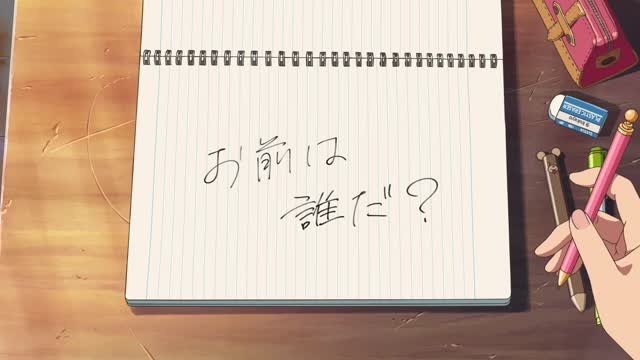 お前は
誰だ?
PLASTIC ERASER